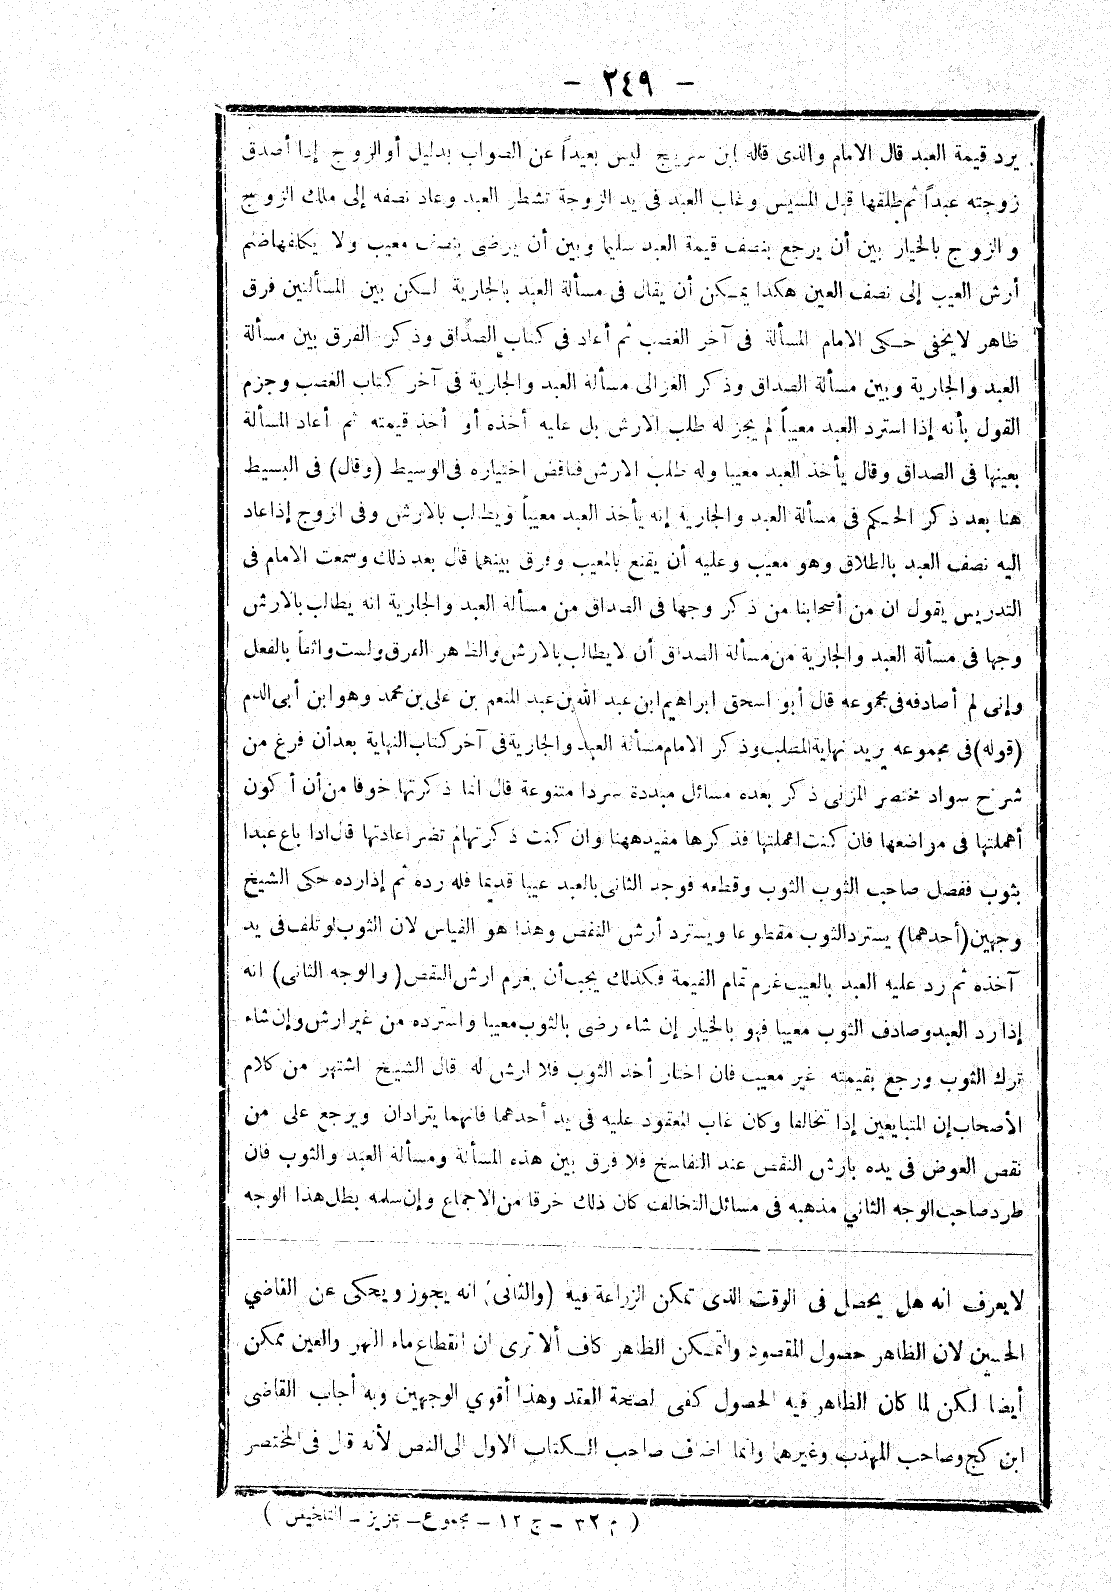 - ٣٤٩ -
يرد قيمة العبد قال الامام والذى قاله ابن سريج ليس بعيداً عن الصواب بدليل أو الزوج إذا أصدق
زوجته عبداً ثم طلقها قبل المسيس وغاب العبد فى يد الزوجة تشطر العبد وعاد نصفه إلى ملك الزوج
والزوج بالخيار بين أن يرجع بنصف قيمة العبد سليما وبين أن يرضى بنصف معيب ولا يكلفها ضم
أرش العيب إلى نصف العين هكذا يمكن أن يقال فى مسألة العبد بالجارية لكن بين المسألتين فرق
ظاهر لايخفى حكى الامام المسألة فى آخر الغصب ثم أعاد فى كتاب الصداق وذكر الفرق بين مسألة
العبد والجارية وبين مسألة الصداق وذكر الغزالى مسألة العبد والجارية فى آخر كتاب الغصب وجزم
القول بأنه إذا استرد العبد معيباً لم يجز له طلب الارش بل عليه أخذه أو أخذ قيمته ثم أعاد المسألة
بعينها فى الصداق وقال يأخذ العبد معيبا وله طلب الارش فناقض اختياره فى الوسيط (وقال) فى البسيط
هنا بعد ذكر الحكم فى مسألة العبد والجارية إنه يأخذ العبد معيباً ويطالب بالارش وفى الزوج إذا عاد
اليه نصف العبد بالطلاق وهو معيب وعليه أن يقنع بالمعيب وفرق بينهما قال بعد ذلك وسمعت الامام فى
التدريس يقول ان من أصحابنا من ذكر وجها فى الصداق من مسألة العبد والجارية انه يطالب بالارش
وجها فى مسألة العبد والجارية من مسألة الصداق أن لا يطالب بالارش والظاهر الفرق ولست واثقاً بالفعل
وإنى لم أصادفه فى مجموعه قال أبو اسحق ابراهيم ابن عبد الله بن عبد المنعم بن على بن محمد وهو ابن أبى الدم
(قوله) فى مجموعه يريد نهاية المطلب وذكر الامام مسألة العبد والجارية فى آخر كتاب النهاية بعد أن فرغ من
شرح سواد مختصر المزنى ذكر بعده مسائل مبددة سردا متنوعة قال انما ذكرتها خوفا من أن أكون
أهملتها فى مواضعها فان كنت اهملتها فذكرها مفيد ههنا وان كنت ذكرتها لم تضر اعادتها قال اذا باع عبدا
بثوب ففصل صاحب الثوب الثوب وقطعه فوجد الثانى بالعبد عيبا قديما فله رده ثم إذا رده حكى الشيخ
وجهين (أحدهما) يسترد الثوب مقطوعا ويسترد أرش النقص وهذا هو القياس لان الثوب لو تلف فى يد
آخذه ثم رد عليه العبد بالعيب غرم تمام القيمة فكذلك يجب أن يغرم ارش النقص (والوجه الثانى) انه
إذا رد العبد وصادف الثوب معيبا فهو بالخيار إن شاء رضى بالثوب معيبا واسترده من غير ارش وإن شاء
ترك الثوب ورجع بقيمته غير معيب فان اختار أخذ الثوب فلا ارش له قال الشيخ اشتهر من كلام
الأصحاب إن المتبايعين إذا تخالفا وكان غاب المعقود عليه فى يد أحدهما فانهما يترادان ويرجع على من
نقص العوض فى يده بارش النقص عند التفاسخ فلا فرق بين هذه المسألة ومسألة العبد والثوب فان
طرد صاحب الوجه الثاني مذهبه فى مسائل التخالف كان ذلك خرقا من الاجماع وإن سلمه بطل هذا الوجه
لايعرف انه هل يحصل فى الوقت الذى تمكن الزراعة فيه (والثانى) انه يجوز ويحكى عن القاضي
الحسين لان الظاهر حصول المقصود والتمكن الظاهر كاف ألا ترى ان انقطاع ماء النهر والعين ممكن
أيضا لكن لما كان الظاهر فيه الحصول كفى لصحة العقد وهذا أقوي الوجهين وبه أجاب القاضى
ابن كج وصاحب المهذب وغيرهما وانما اضاف صاحب الكتاب الاول الى النص لأنه قال فى المختصر
( م ٣٢ - ج ١٢ - مجموع - عزيز - التلخيص )